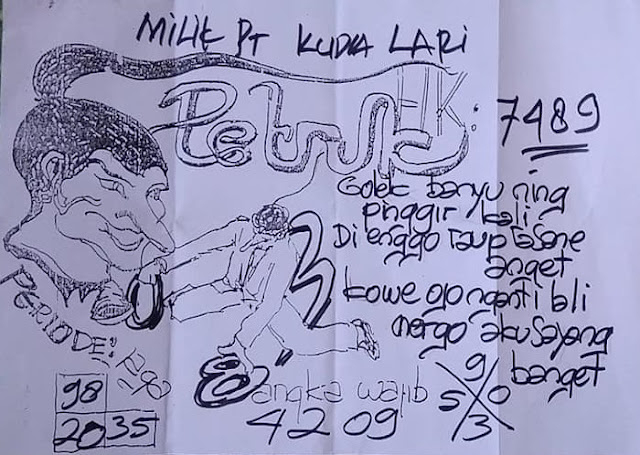 MILIK PT KUDA LARI
Petruk HK: 7489
Golek banyu ning
pinggir kali
Di enggo raup rasane
anget
kowe ojo nganti bli
mergo aku sayang
banget
PERIODE:
98
20 35
angka wajib
4209
9
5 0
3